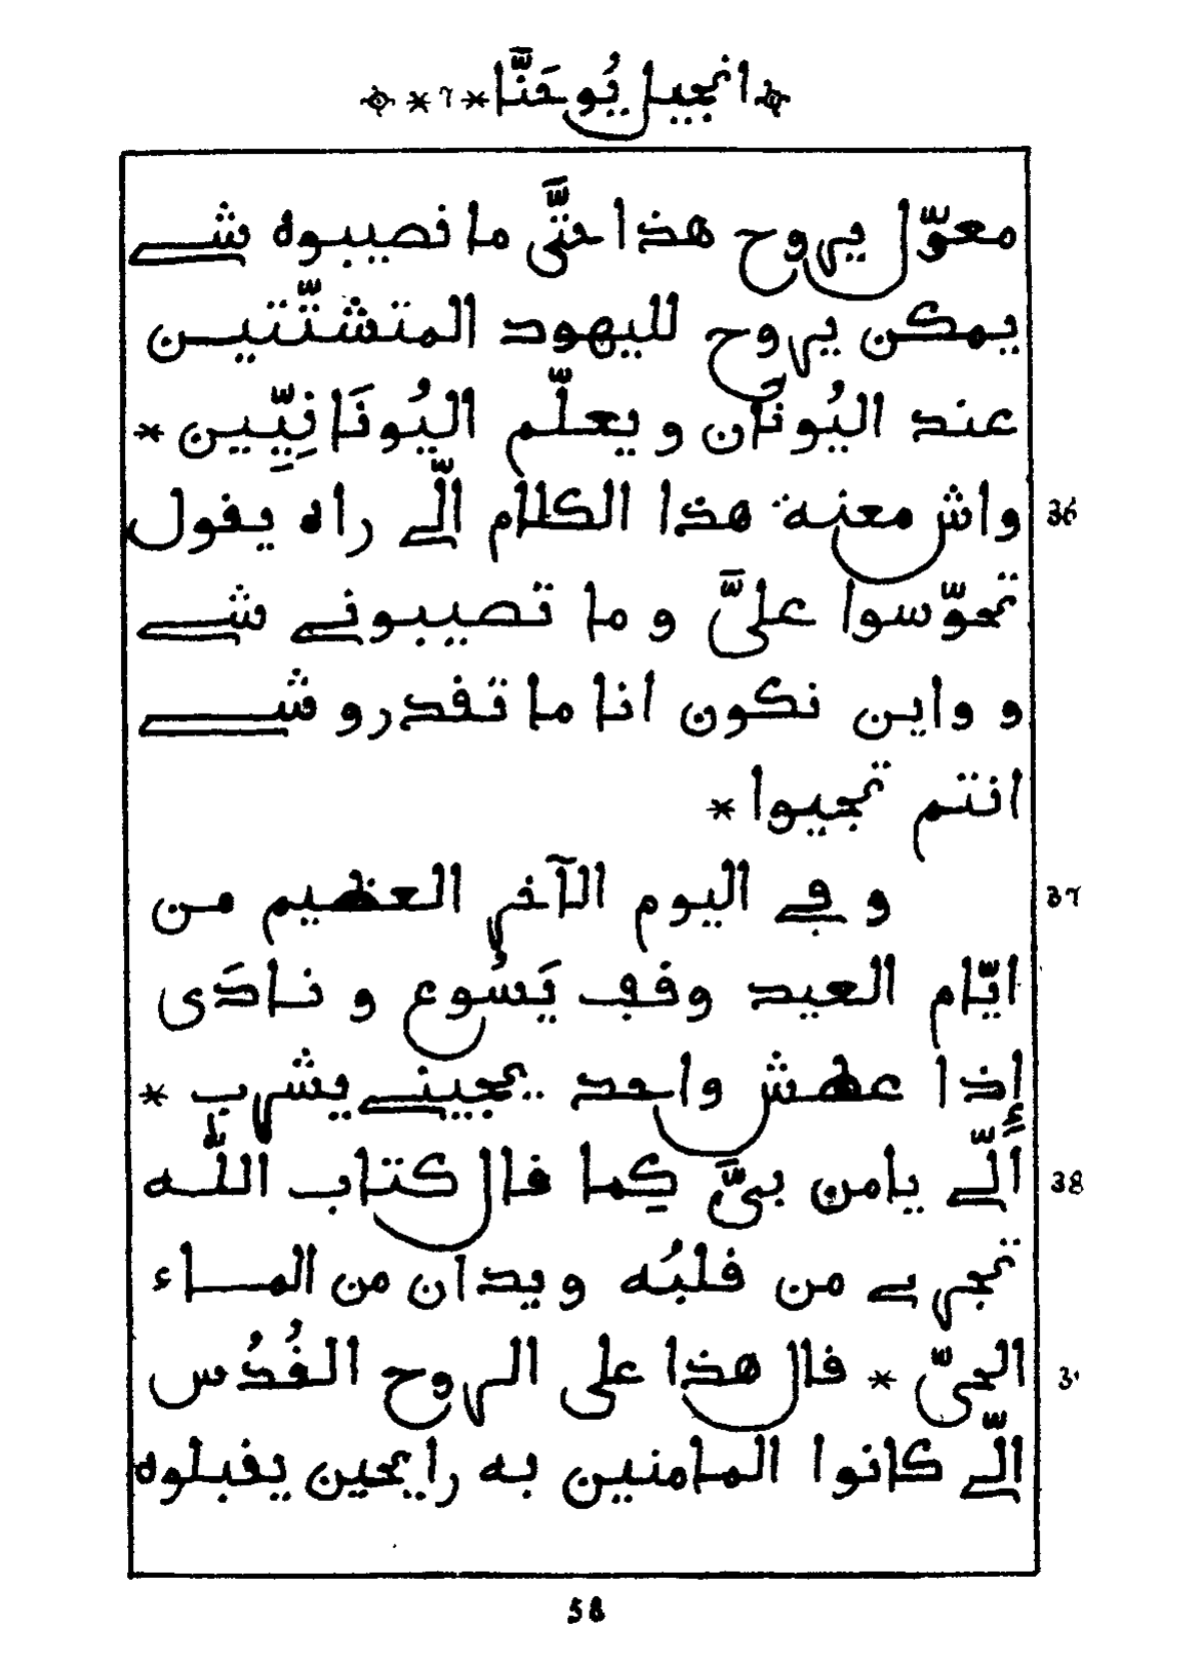 انجيل يُوحَنَّا * 7 *
معوّل يروح هذا حتَّى ما نصيبوه شے
يمكن يروح لليهود المتشتّتيـن
عند اليُونَان و يعلّم اليُونَانِيِّين *
36 واش معنته هذا الكلام الّے راه يقول
تحوّسوا عليَّ و ما تصيبونے شے
و واين نكون انا ما تقدروشے
انتم تجيوا *
37 و في اليوم الآخر العظيم من
ايّام العيد وقف يَسُوع و نادَى
إذا عطش واحد يجينے يشرب *
38 الّے يامن بيَّ كِما قال كتاب اللّٰه
تجرے من قلبُه ويدان من المـاء
الحيّ * قال هذا على الروح القُدُس
الّے كانوا المامنين به رايحين يقبلوه
58